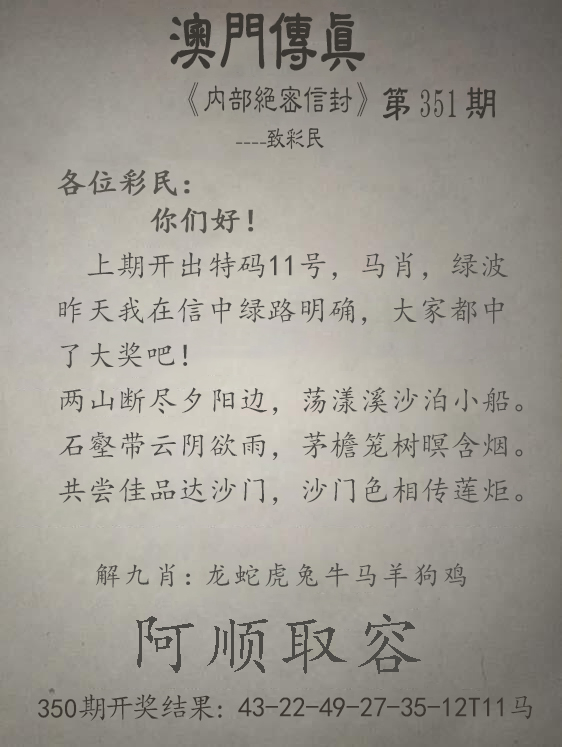 澳門傳眞
《内部絕密信封》第351期
----致彩民
各位彩民：
你们好！
上期开出特码11号，马肖，绿波
昨天我在信中绿路明确，大家都中
了大奖吧！
两山断尽夕阳边，荡漾溪沙泊小船。
石壑带云阴欲雨，茅檐笼树暝含烟。
共尝佳品达沙门，沙门色相传莲炬。
解九肖：龙蛇虎兔牛马羊狗鸡
阿顺取容
350期开奖结果：43-22-49-27-35-12T11马